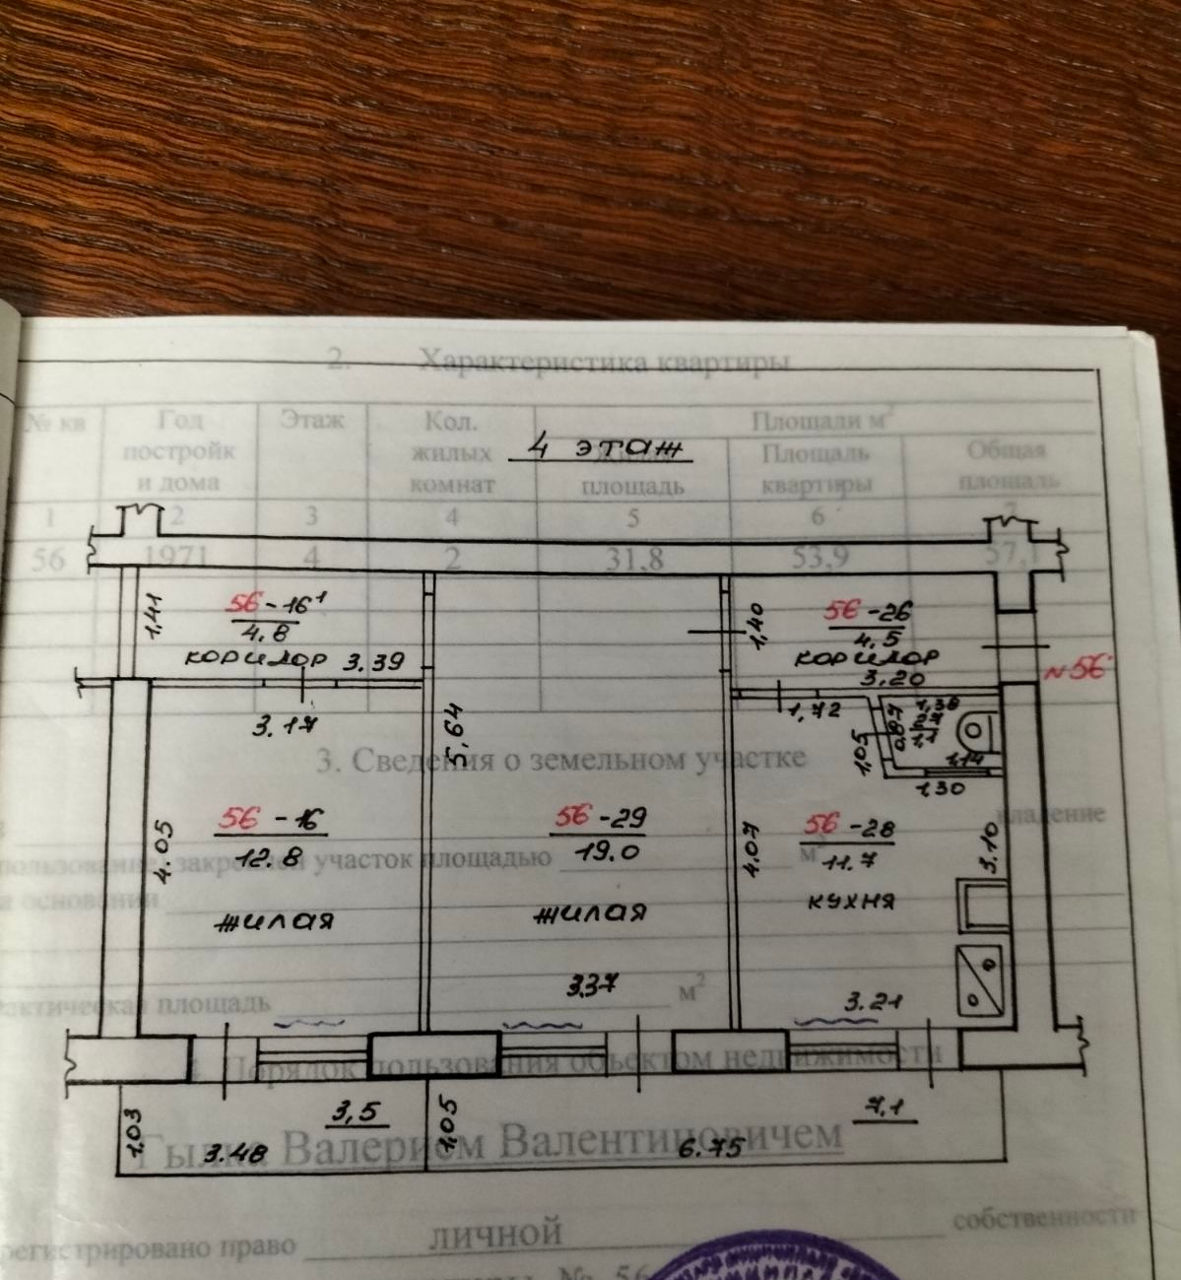 2. Характеристика квартиры
№ кв
Год постройк и дома
Этаж
Кол. жилых комнат
Площади м²
площадь
Площадь квартиры
Общая площадь
4 этаж
1 2 3 4 5 6 7
56 1971 4 2 31,8 53,9
1,41
56-16¹
4.8
коридор 3.39
1,40
56-26
4.5
коридор
3.20
N56
3.17
5,64
1,72
1,05
0,87
1,38
1,1
1,14
1,30
3. Сведения о земельном участке
владение
4.05
56-16
12.8
жилая
56-29
19.0
жилая
4.07
56-28
11.7
кухня
3.10
закреплен участок площадью м²
на основании
3.37
3.21
фактическая площадь м²
4. Порядок пользования объектом недвижимости
1,03
3,5
3.48
1,05
7,1
6.75
Валерием Валентиновичем
зарегистрировано право личной собственности
№ 56